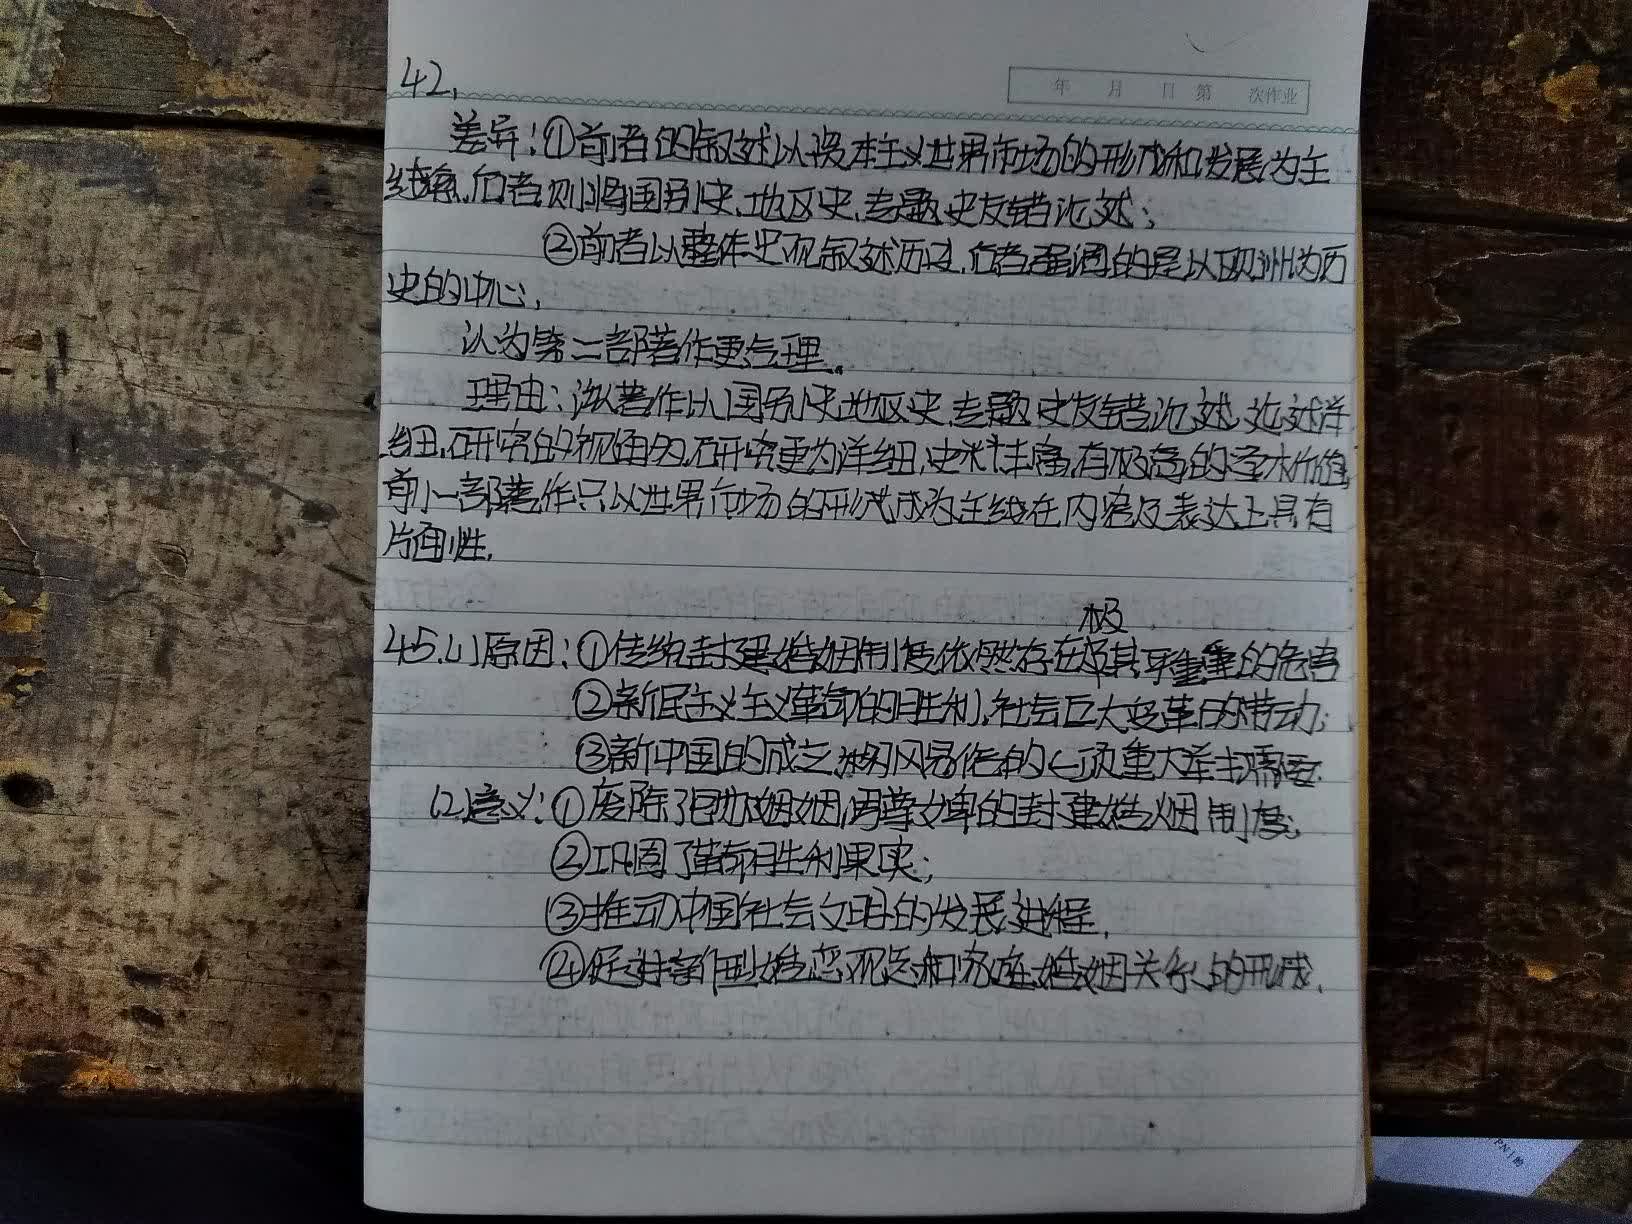 42.
年 月 日 第 次作业
差异:①前者的叙述以资本主义世界市场的形成和发展为主
线索,后者则将国别史、地区史、专题史交错论述;
②前者以整体史观叙述历史,后者强调的是以欧洲为历
史的中心,
认为第二部著作更合理。
理由:该著作以国别史地区史、专题史交错论述,论述详
细,研究的视角多,研究更为详细,史料丰富,有极高的学术价值,
前一部著作只以世界市场的形成为主线在内容及表达上具有
片面性,
极
45.(1)原因:①传统封建婚姻制度依然存在极其严重的危害
②新民主主义革命的胜利,社会巨大变革的带动;
③新中国的成立,移风易俗的一项重大举措需要.
(2)意义:①废除了包办婚姻,男尊女卑的封建婚姻制度;
②巩固了革命胜利果实;
③推动中国社会文明的发展进程,
④促进新型婚恋观念和家庭婚姻关系的形成,